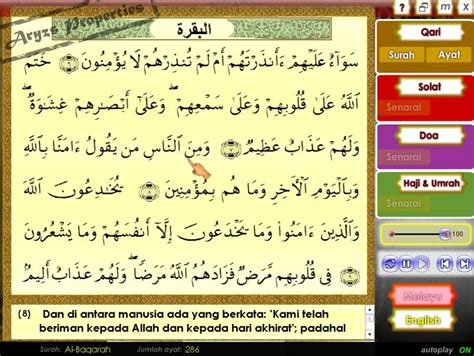 Aryzs Properties
البقرة
سَوَآءٌ عَلَيْهِمْ ءَأَنذَرْتَهُمْ أَمْ لَمْ تُنذِرْهُمْ لَا يُؤْمِنُونَ ۝٦ خَتَمَ
اللَّهُ عَلَىٰ قُلُوبِهِمْ وَعَلَىٰ سَمْعِهِمْ ۖ وَعَلَىٰٓ أَبْصَٰرِهِمْ غِشَٰوَةٌ ۖ
وَلَهُمْ عَذَابٌ عَظِيمٌ ۝٧ وَمِنَ النَّاسِ مَن يَقُولُ ءَامَنَّا بِاللَّهِ
وَبِالْيَوْمِ الْءَاخِرِ وَمَا هُم بِمُؤْمِنِينَ ۝٨ يُخَٰدِعُونَ اللَّهَ
وَالَّذِينَ ءَامَنُوا وَمَا يَخْدَعُونَ إِلَّآ أَنفُسَهُمْ وَمَا يَشْعُرُونَ
۝٩ فِى قُلُوبِهِم مَّرَضٌ فَزَادَهُمُ اللَّهُ مَرَضًا ۖ وَلَهُمْ عَذَابٌ أَلِيمٌ
(8) Dan di antara manusia ada yang berkata: 'Kami telah
beriman kepada Allah dan kepada hari akhirat'; padahal
Surah: Al-Baqarah Jumlah ayat: 286
autoplay ON
Qari
Surah Ayat
Solat
Senarai
Doa
Senarai
Haji & Umrah
Senarai
100
Melayu
English